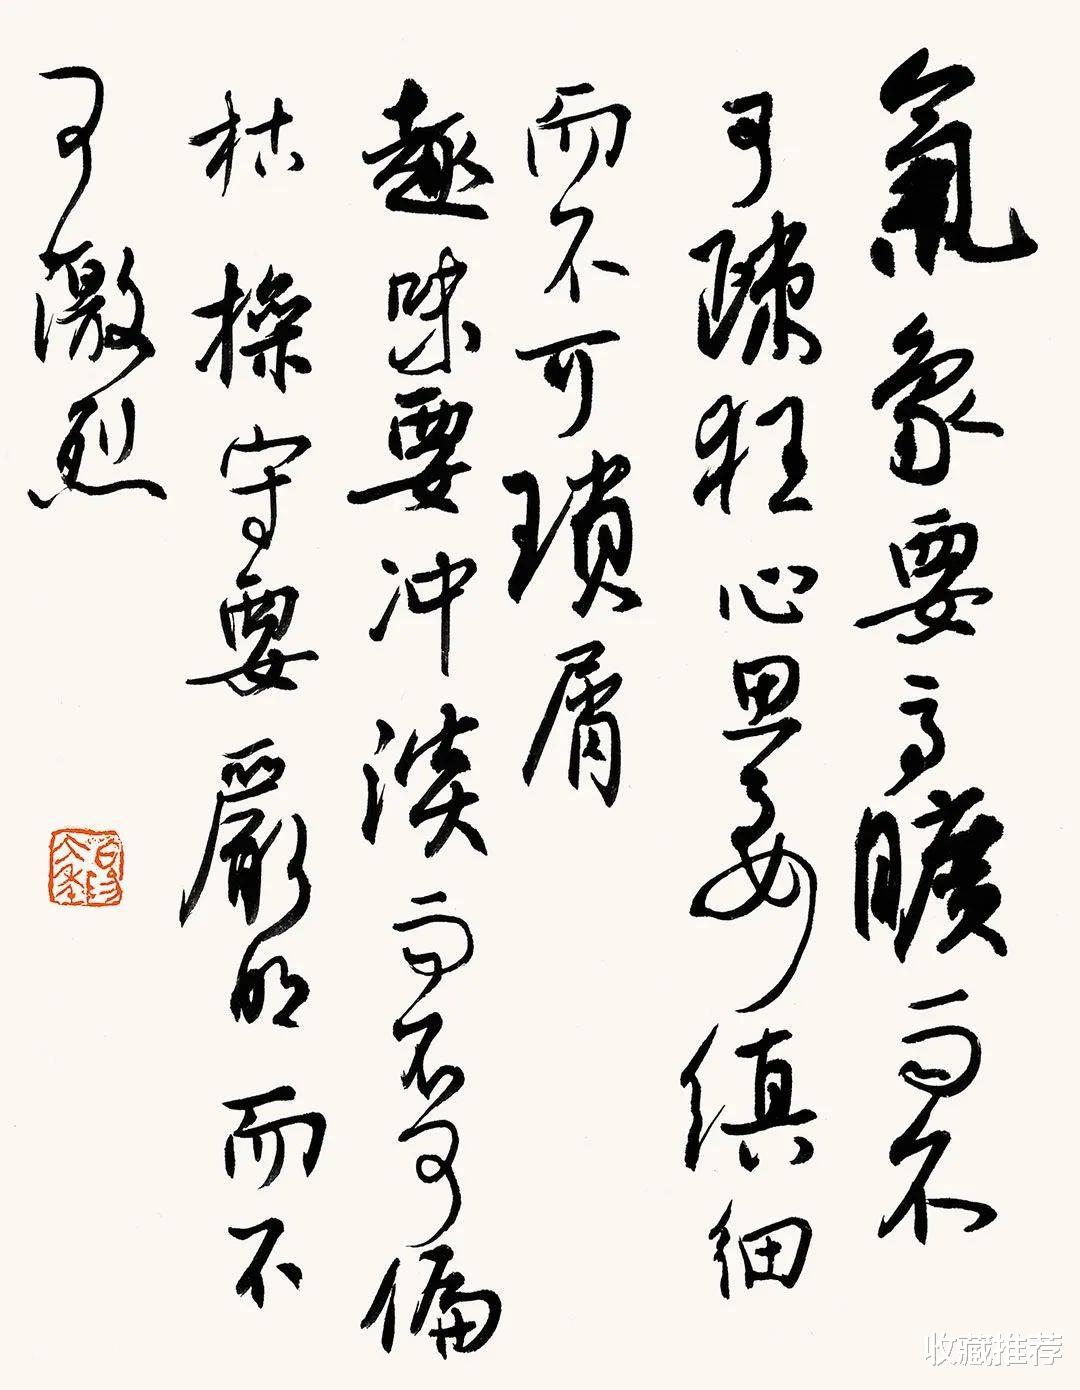 氣象要高曠而不
可疎狂心思要縝細
而不可瑣屑
趣味要冲淡而不可偏
枯操守要嚴明而不
可激烈
收藏推荐